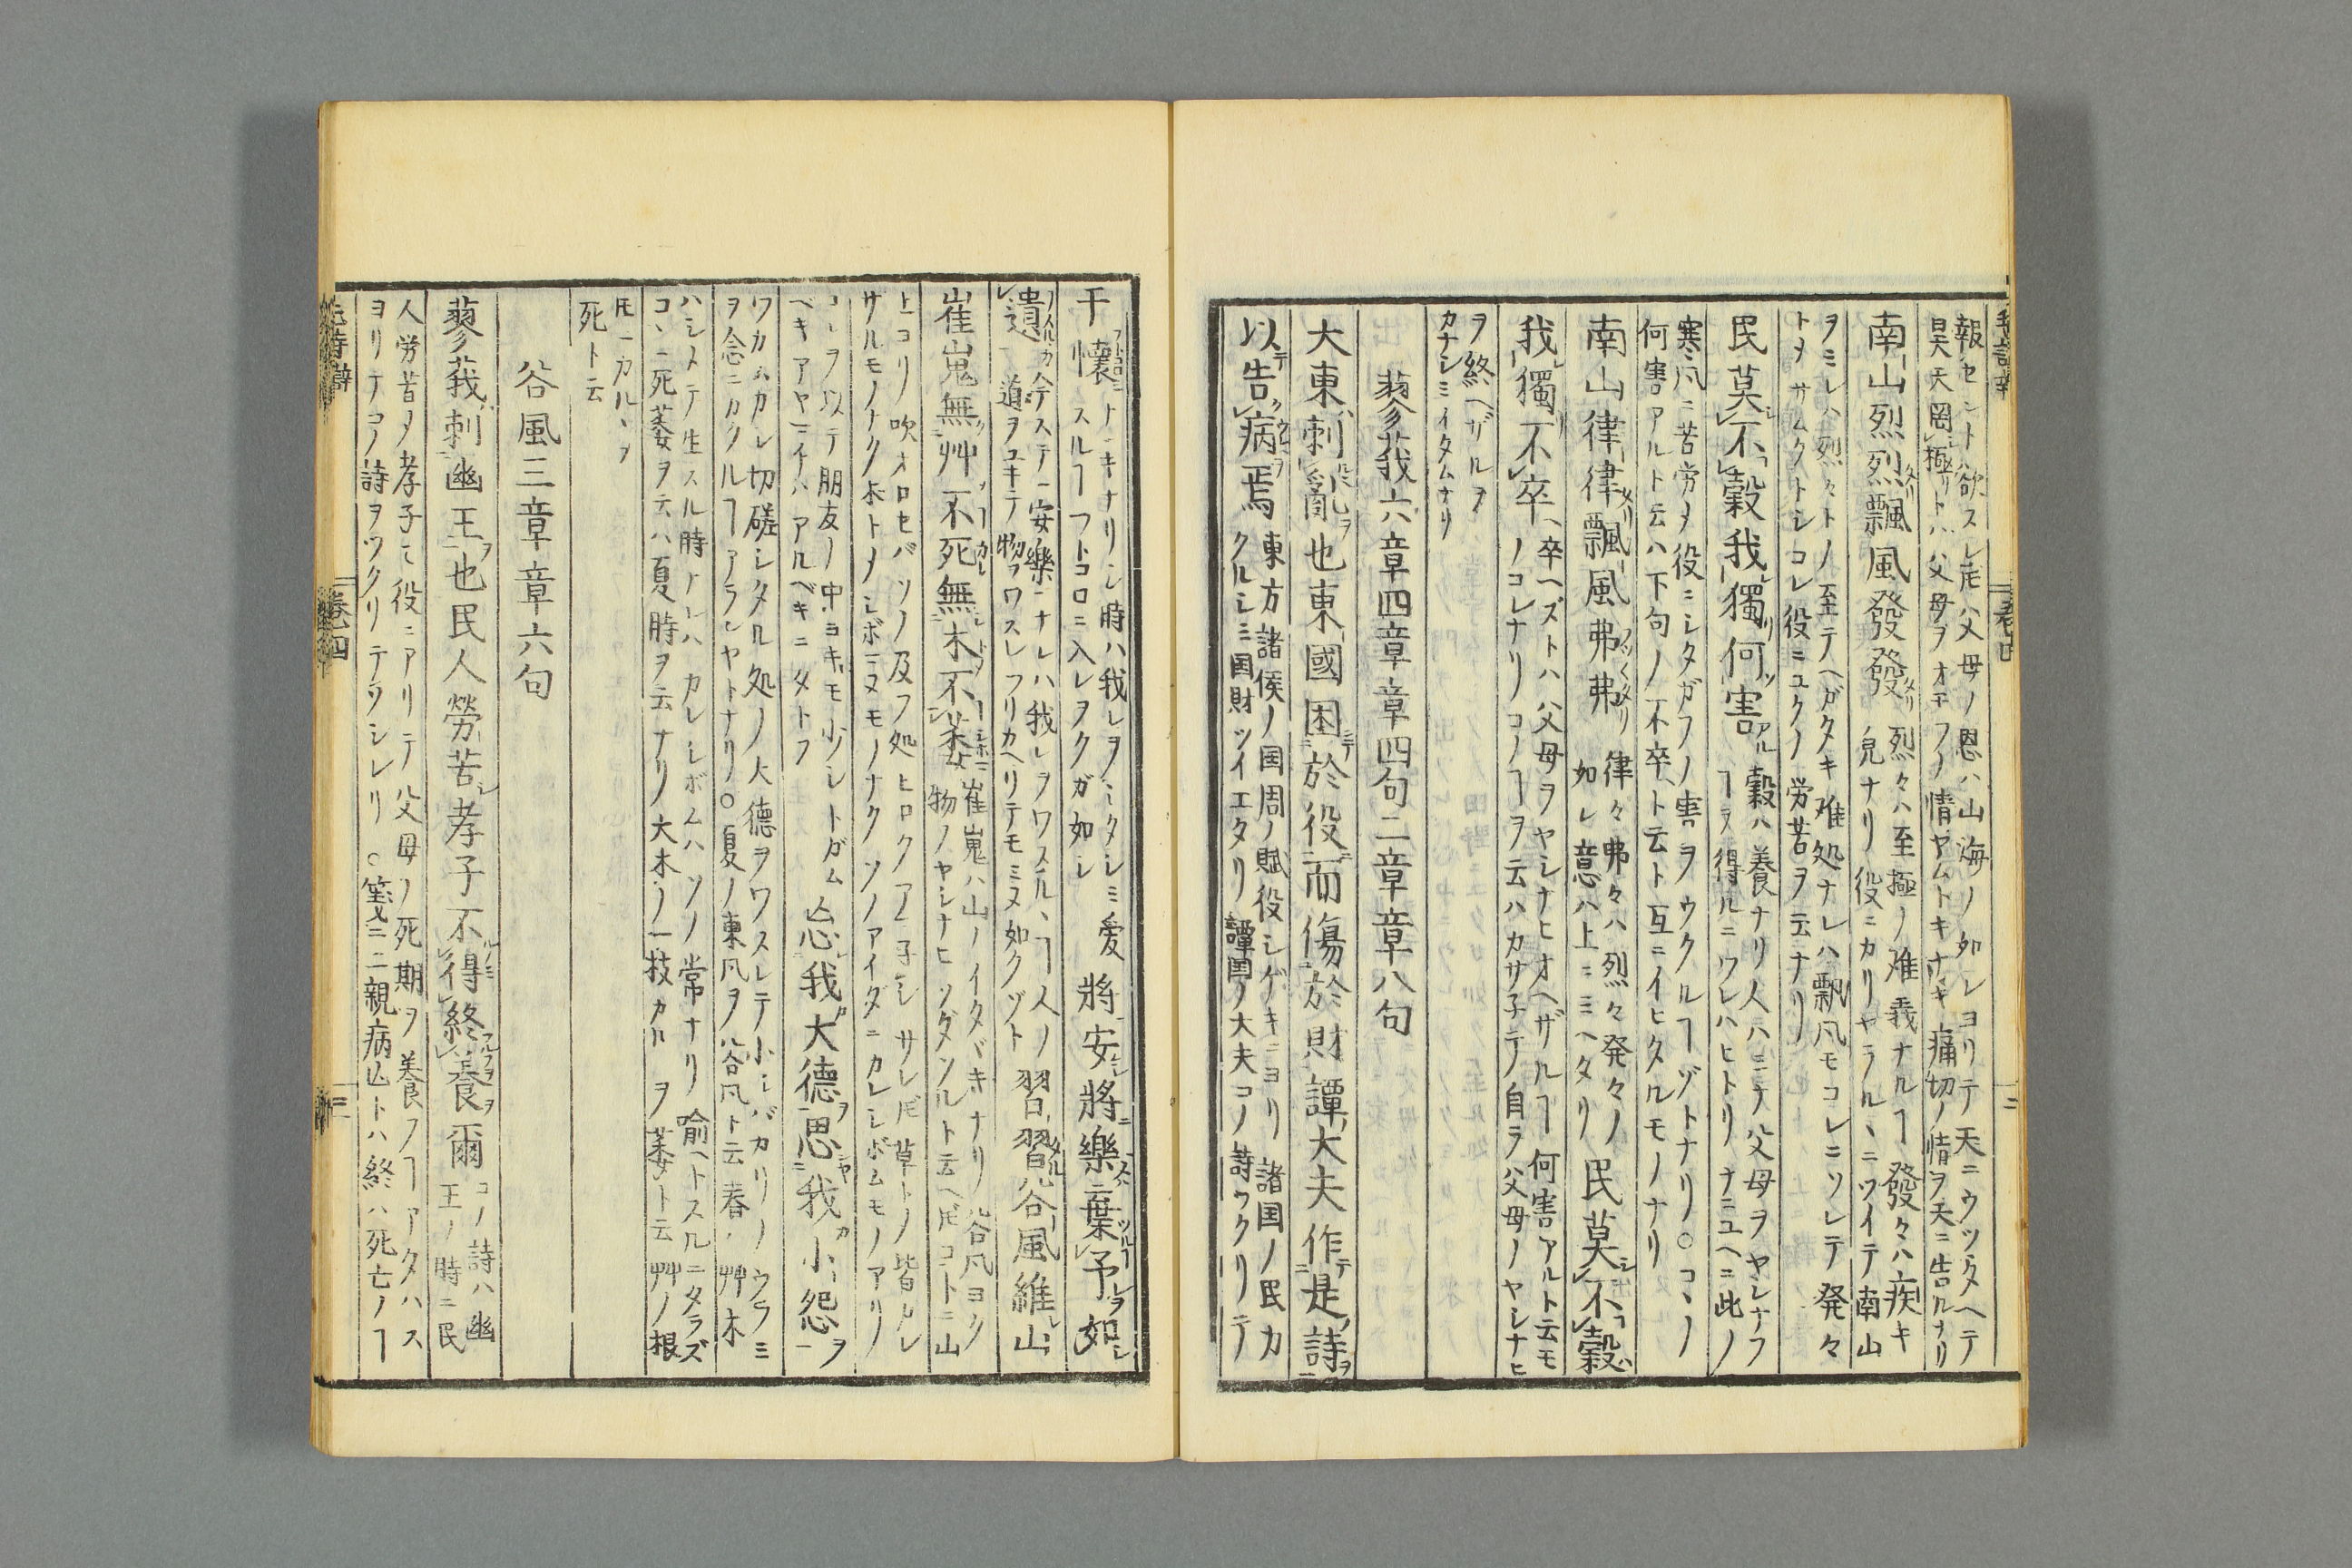 報セント欲スレ𪜈父母ノ恩ハ山海ノ如レヨリテ天ニウツタヘテ
昊天罔極リトハ父母ヲオモフノ情ヤムトキナキ痛切ノ情ヲ天ニ告ルナリ
南山烈烈飄風發發
烈々ハ至極ノ難義ナルヿ發々ハ疾キ
皃ナリ役ニカリヤラルヽニツイテ南山
ヲミレハ烈々トノ至テヘガタキ難処ナレハ飄凡モコレニソレテ発々
トメサムクトシコレ役ニユクノ労苦ヲ云ナリ
民莫不穀我獨何害
穀ハ養ナリ人ハミナ父母ヲヤシナフ
ヿヲ得ルニワレハヒトリナニユヘニ此ノ
寒凡ニ苦労メ役ニシタガフノ害ヲウクルヿゾトナリ○コヽノ
何害アルト云ハ下句ノ不卒ト云ト互ニイヒタルモノナリ
南山律律飄風弗弗
律々弗々ハ烈々発々ノ
如レ意ハ上ニミヘタリ
民莫不穀
我獨不卒
卒ヘズトハ父母ヲヤシナヒオヘザルヿ何害アルト云モ
ノコレナリコノヿヲ云ハカサ子テ自ラ父母ノヤシナヒ
ヲ終ヘザルヲ
カナシミイタムナリ
蓼莪六章四章章四句二章章八句
大東刺亂也東國困於役而傷於財譚大夫作是詩
以告病焉
東方諸侯ノ国周ノ賦役シゲキニヨリ諸国ノ民カ
クルシミ国財ツイエタリ譚国ノ大夫コノ詩ツクリテ
于懷
ナキナリシ時ハ我レヲシタシミ愛
スルヿフトコロニ入レヲクガ如レ
將安將樂棄予如
遺
今ステニ安樂ナレハ我レヲワスルヽヿ人ノ
道ヲユキテ物ヲワスレフリカヘリテモミヌ如クゾト
習習谷風維山
崔嵬無艸不死無木不萎
崔嵬ハ山ノイタヾキナリ谷凡ヨク
物ノヤシナヒソダツルト云ヘ𪜈コトニ山
上ヨリ吹オロセバソノ及フ処ヒロクアマ子シサレ𪜈草トノ皆カレ
ザルモノナク木トメシボミヌモノナクソノアイダニカレシボムモノアリ
コレヲ以テ朋友ノ中ヨキモ小シトガム
ベキアヤマチハアルベキニタトフ
忘我大德思我小怨
ワカムカレ切磋シタル処ノ大德ヲワスレテ小シバカリノウラミ
ヲ念ニカクルヿアランヤトナリ○夏ノ東凡ヲ谷凡ト云春ハ艸木
ハシメテ生スル時ナレハカレシボムハソノ常ナリ喩ヘトスルニタラズ
コヽニ死萎ヲ云ハ夏時ヲ云ナリ大木ノ一枝カルヲ萎ト云艸ノ根
𪜈ニカルヽヲ
死ト云
谷風三章章六句
蓼莪刺幽王也民人勞苦孝子不得終養爾
コノ詩ハ幽
王ノ時ニ民
人労苦メ孝子モ役ニアリテ父母ノ死期ヲ養フヿアタハス
ヨリテコノ詩ヲツクリテソシレリ○箋ニ二親病亡トハ終ハ死亡ノヿ
卷四
三